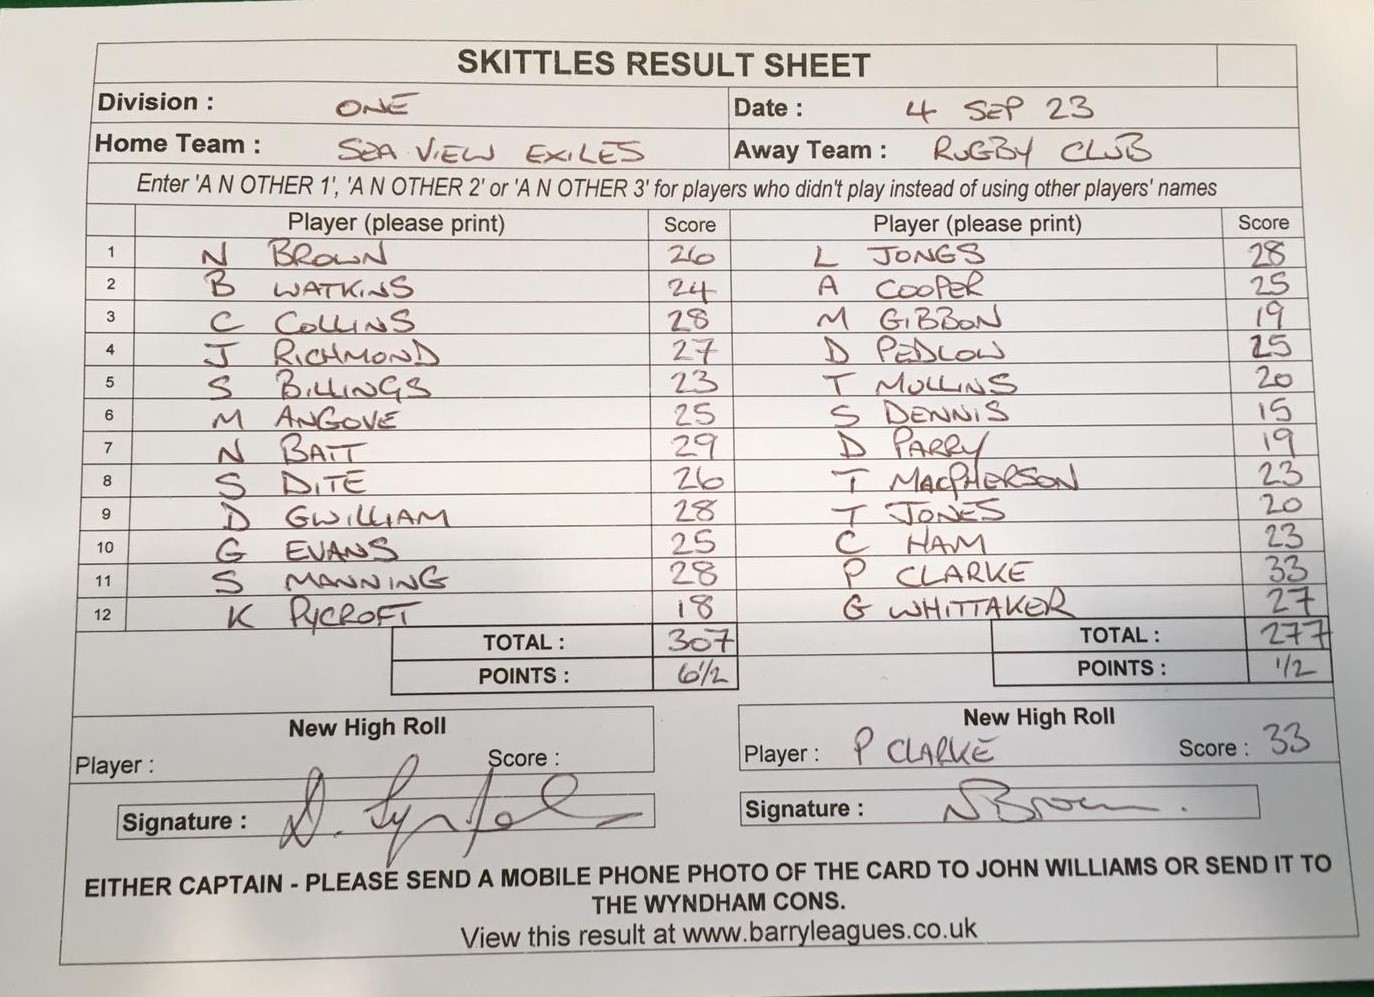 SKITTLES RESULT SHEET
Division : ONE Date : 4 SEP 23
Home Team : SEA VIEW EXILES Away Team : RUGBY CLUB
Enter 'A N OTHER 1', 'A N OTHER 2' or 'A N OTHER 3' for players who didn't play instead of using other players' names
Player (please print) Score Player (please print) Score
1 N BROWN 26 L JONES 28
2 B WATKINS 24 A COOPER 25
3 C COLLINS 28 M GIBBON 19
4 J RICHMOND 27 D PEDLOW 25
5 S BILLINGS 23 T MULLINS 20
6 M ANGOVE 25 S DENNIS 15
7 N BATT 29 D PARRY 19
8 S DITE 26 T MACPHERSON 23
9 D GWILLIAM 28 T JONES 20
10 G EVANS 25 C HAM 23
11 S MANNING 28 P CLARKE 33
12 K PYCROFT 18 G WHITTAKER 27
TOTAL : 307 TOTAL : 277
POINTS : 6½ POINTS : 1/2
New High Roll New High Roll
Player : Score : Player : P CLARKE Score : 33
Signature : D. Signature : N Brown.
EITHER CAPTAIN - PLEASE SEND A MOBILE PHONE PHOTO OF THE CARD TO JOHN WILLIAMS OR SEND IT TO
THE WYNDHAM CONS.
View this result at www.barryleagues.co.uk